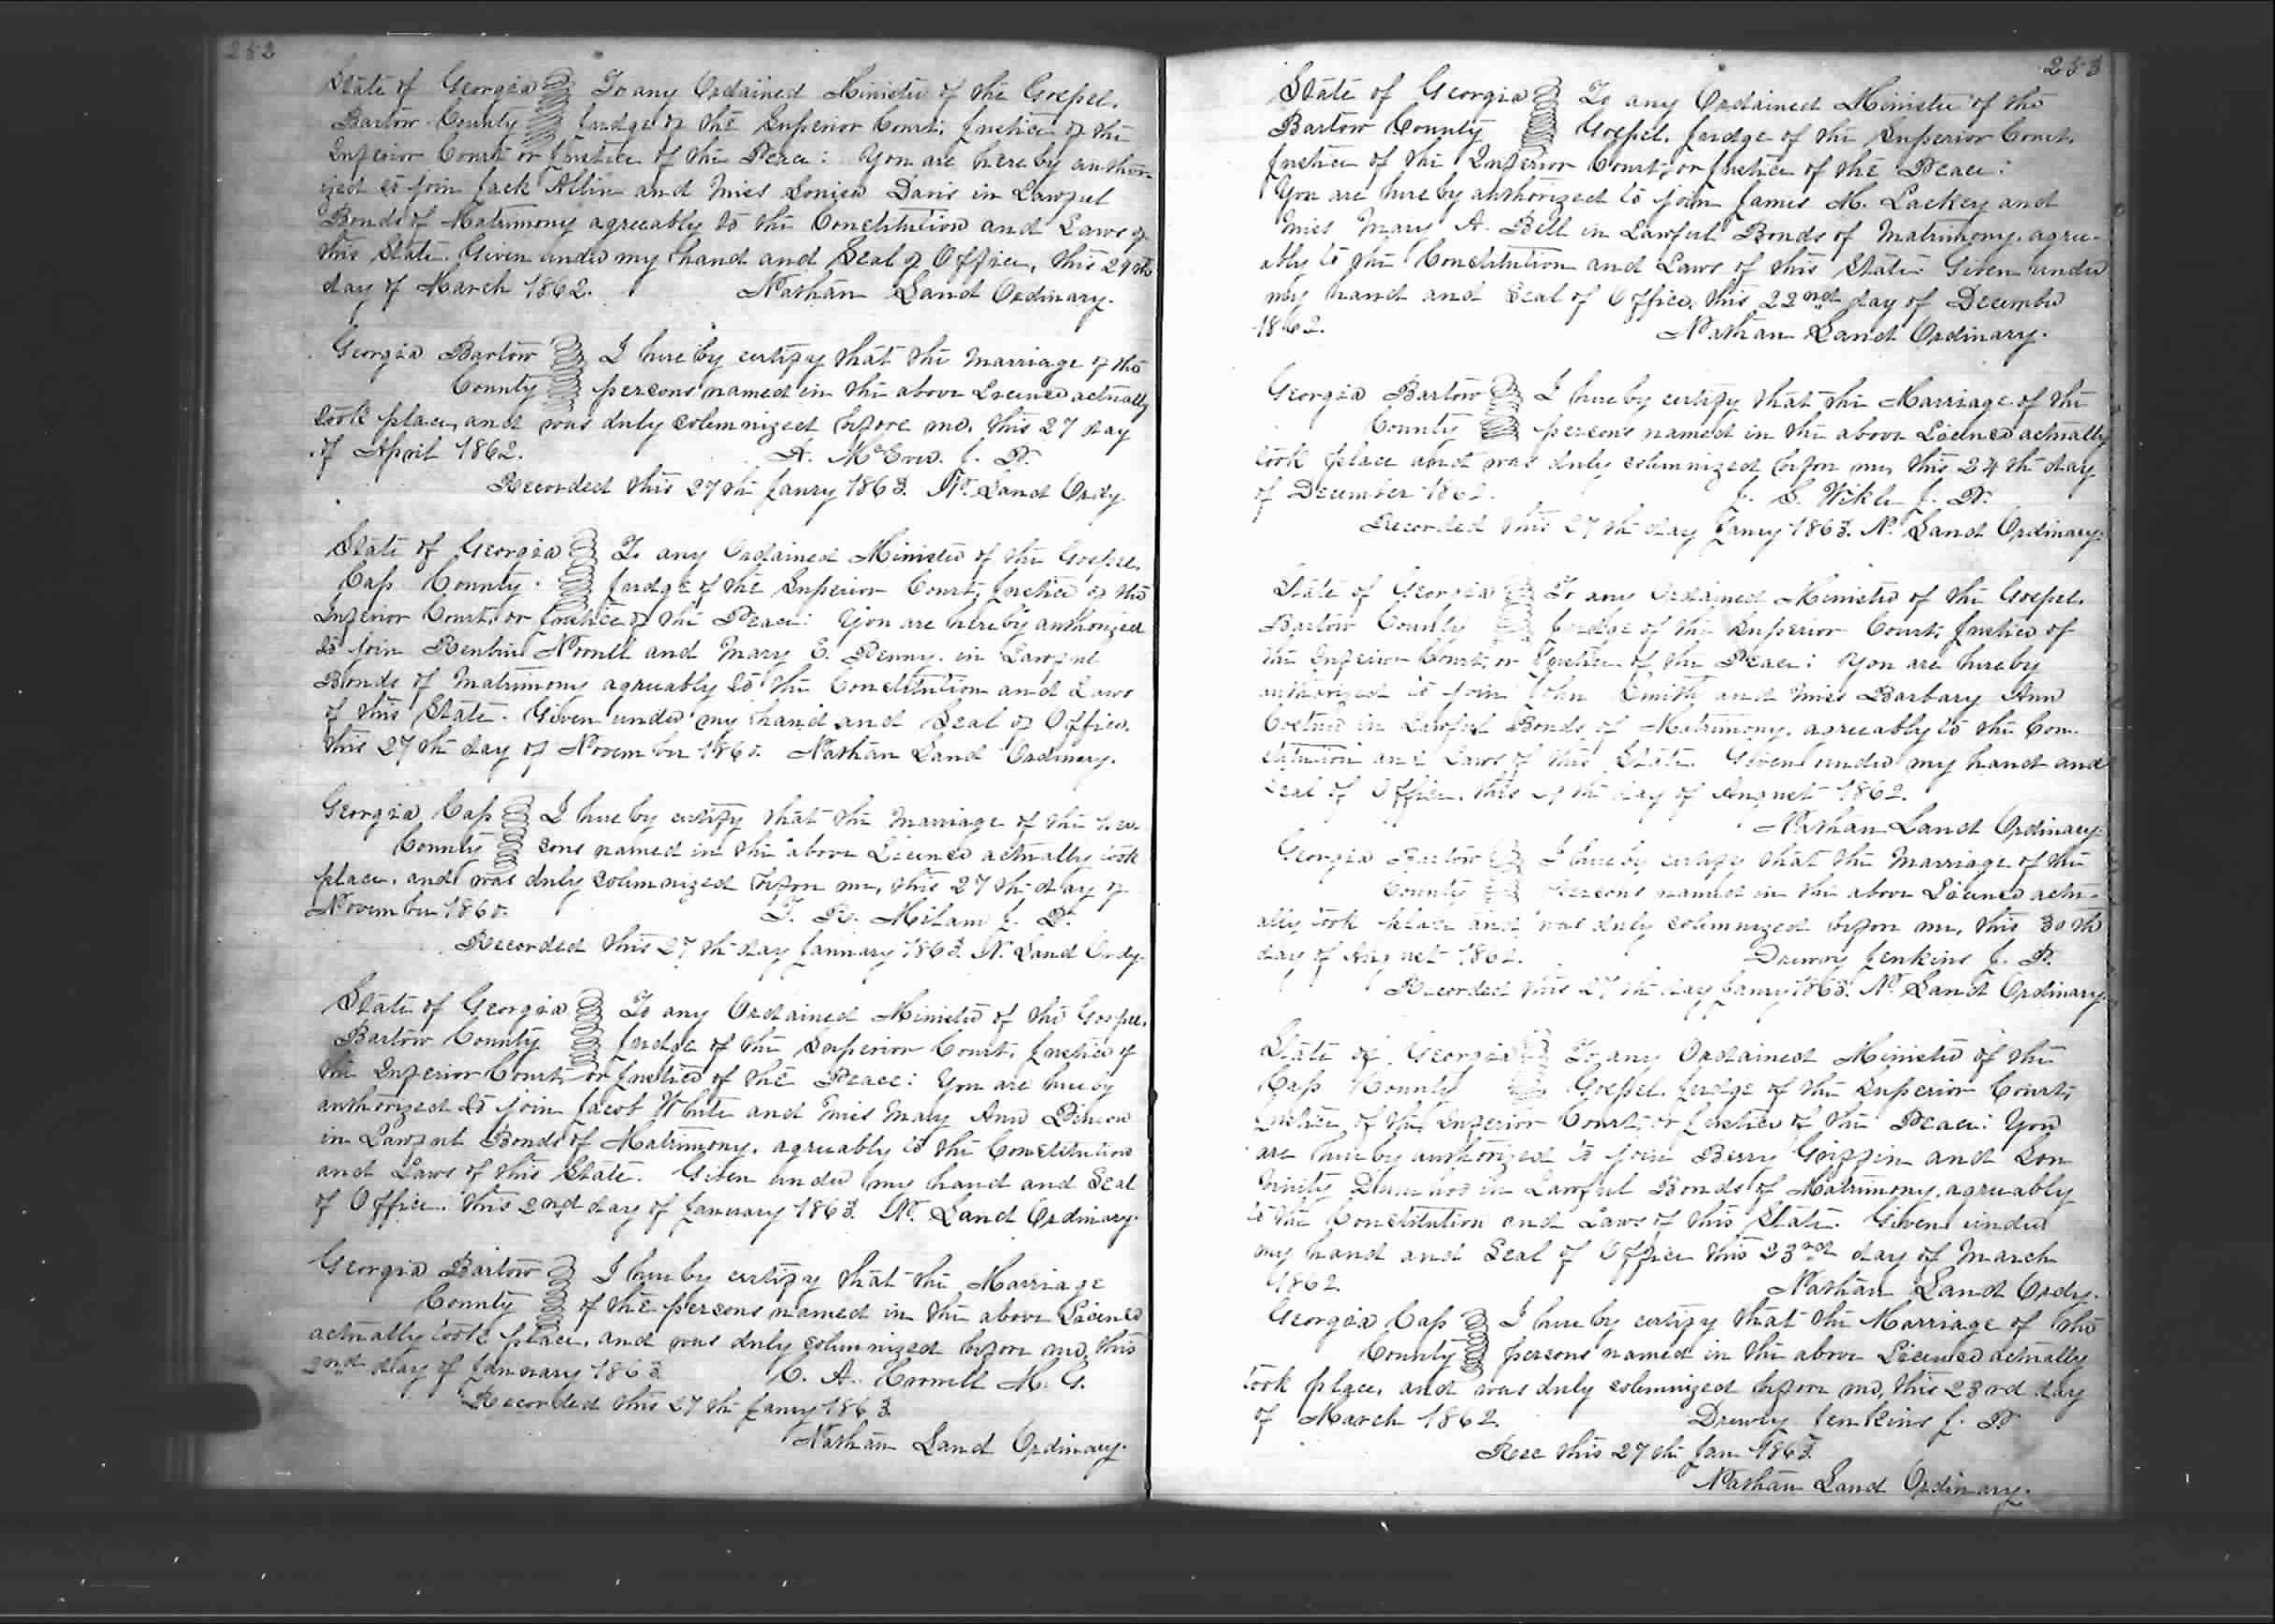 252
State of Georgia To any Ordained Minister of the Gospel.
Bartow County Judge of the Superior Court, Justice of the
Inferior Court or Justice of the Peace: You are hereby author-
ized to join Jack Allin and Miss Louisa Davis in Lawful
Bonds of Matrimony agreeably to the Constitution and Laws of
this State. Given under my hand and Seal of Office, this 29th
day of March 1862. Nathan Land Ordinary.
Georgia Bartow I hereby certify that the Marriage of the
County persons named in the above License actually
took place, and was duly solemnized before me, this 27 day
of April 1862. A. J. P.
Recorded this 27th Janry 1863. N. Land Ordy.
State of Georgia To any Ordained Minister of the Gospel,
Cass County. Judge of the Superior Court, Justice of the
Inferior Court, or Justice of the Peace: You are hereby authorized
to join and Mary E. Penny in Lawful
Bonds of Matrimony agreeably to the Constitution and Laws
of this State. Given under my hand and Seal of Office,
this 27th day of November 1860. Nathan Land Ordinary.
Georgia Cass I hereby certify that the Marriage of the per-
County sons named in the above License actually took
place, and was duly solemnized before me, this 27th day of
November 1860. T. R. Milam J. P.
Recorded this 27th day January 1863. N. Land Ordy.
State of Georgia To any Ordained Minister of the Gospel,
Bartow County Judge of the Superior Court, Justice of
the Inferior Court, or Justice of the Peace: You are hereby
authorized to join Jacob White and Miss Mary Ann
in Lawful Bonds of Matrimony, agreeably to the Constitution
and Laws of this State. Given under my hand and Seal
of Office. this 2nd day of January 1863. N. Land Ordinary.
Georgia Bartow I hereby certify that the Marriage
County of the persons named in the above License
actually took place, and was duly solemnized before me, this
2nd day of January 1863. C. A. M. G.
Recorded this 27th Janry 1863.
Nathan Land Ordinary.
253
State of Georgia To any Ordained Minister of the
Bartow County Gospel, Judge of the Superior Court,
Justice of the Inferior Court, or Justice of the Peace:
You are hereby authorized to join James M. Lackey and
Miss Mary A. Bell in Lawful Bonds of Matrimony, agree-
ably to the Constitution and Laws of this State: Given under
my hand and Seal of Office, this 22nd day of December
1862. Nathan Land Ordinary.
Georgia Bartow I hereby certify that the Marriage of the
County persons named in the above License actually
took place and was duly solemnized before me, this 24th day
of December 1862. J. S. Wikle J. P.
Recorded this 27th day Janry 1863. N. Land Ordinary.
State of Georgia To any Ordained Minister of the Gospel.
Bartow County Judge of the Superior Court, Justice of
the Inferior Court, or Justice of the Peace: You are hereby
authorized to join John Smith and Miss Barbary Ann
in Lawful Bonds of Matrimony, agreeably to the Con-
stitution and Laws of this State. Given under my hand and
Seal of Office, this day of August 1862.
Nathan Land Ordinary.
Georgia Bartow I hereby certify that the Marriage of the
County persons named in the above License actu-
ally took place and was duly solemnized before me, this 30th
day of August 1862. Drewry Jenkins J. P.
Recorded this 27th day Janry 1863. N. Land Ordinary.
State of Georgia To any Ordained Minister of the
Cass County Gospel, Judge of the Superior Court,
Justice of the Inferior Court, or Justice of the Peace: You
are hereby authorized to join Berry Griffin and
in Lawful Bonds of Matrimony, agreeably
to the Constitution and Laws of this State. Given under
my hand and Seal of Office this 23rd day of March
1862. Nathan Land Ordy.
Georgia Cass I hereby certify that the Marriage of the
County persons named in the above License actually
took place, and was duly solemnized before me, this 23rd day
of March 1862. Drewry Jenkins J. P.
Rec this 27th Jan 1863.
Nathan Land Ordinary.